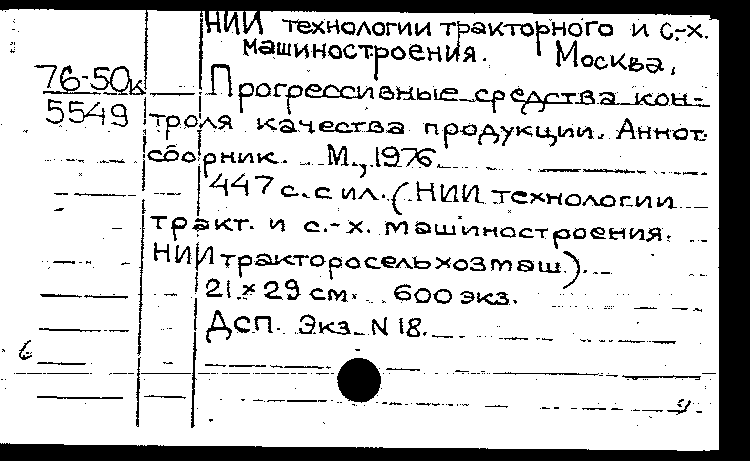 НИИ технологии тракторного и с.-х.
машиностроения. Москва,
76-50к
Прогрессивные средства кон-
5549
троля качества продукции. Аннот.
сборник. М., 1976.
447 с. с ил. (НИИ технологии
тракт. и с.-х. машиностроения.
НИИтракторосельхозмаш).
21 × 29 см. 600 экз.
ДСП. Экз. N 18.
б